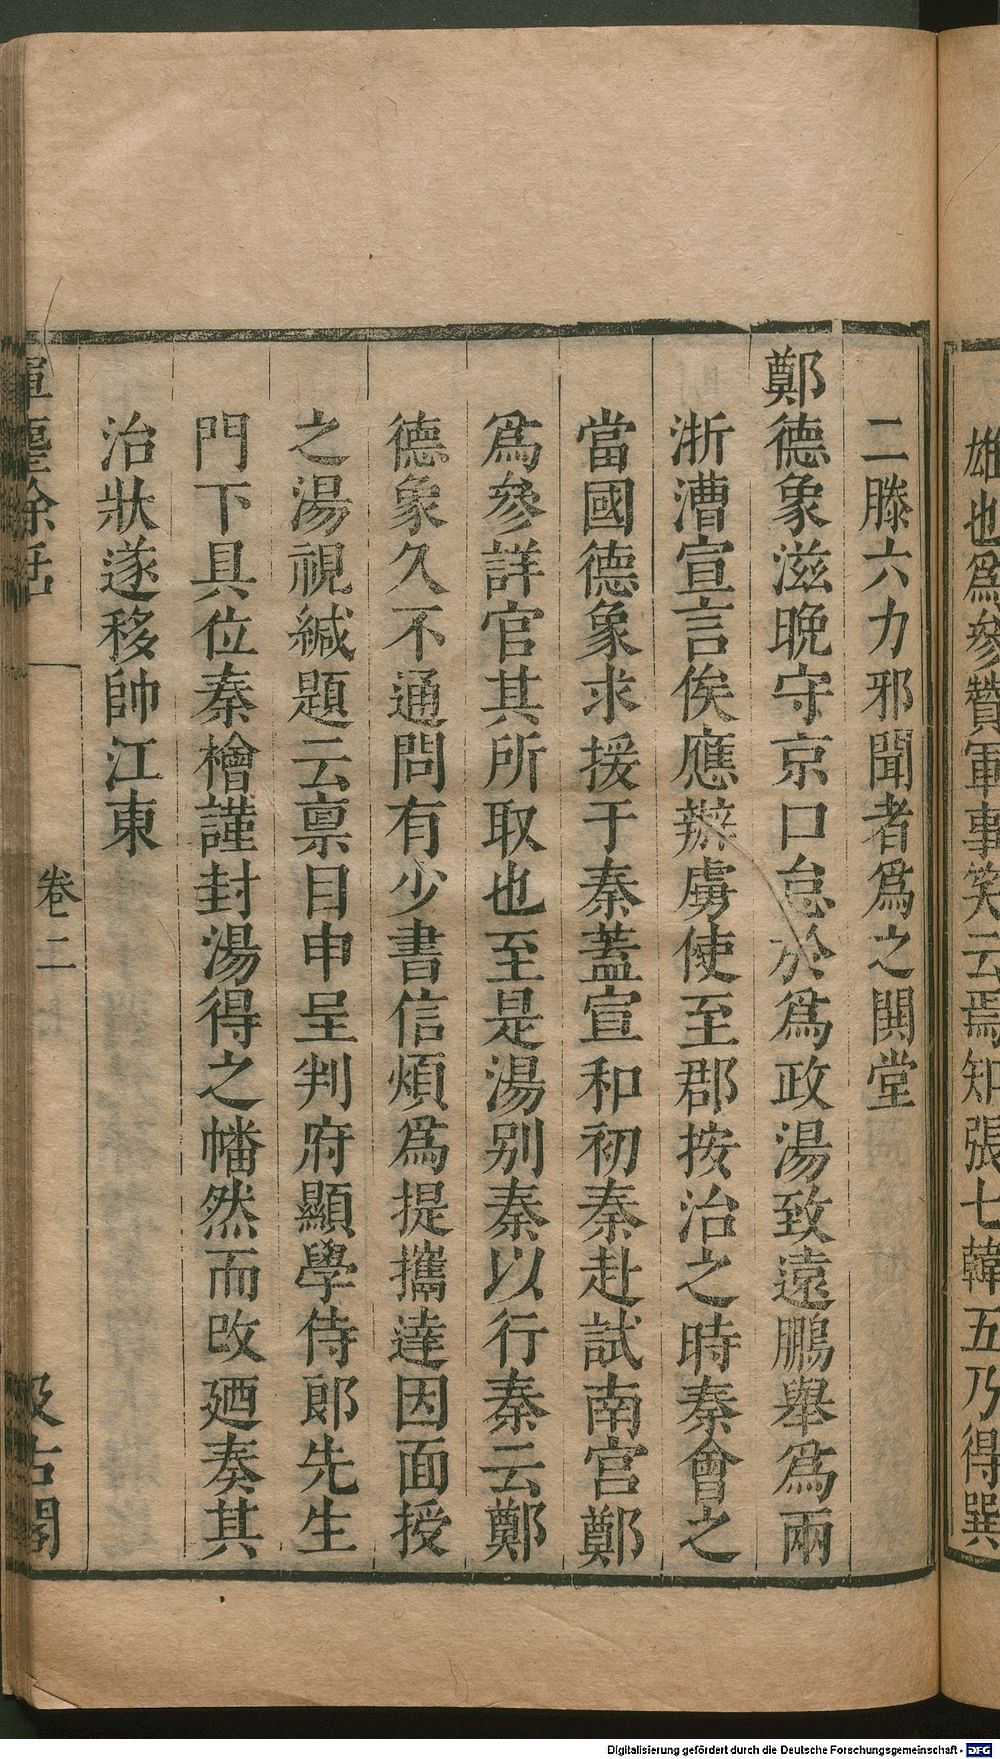 雄也爲參贊軍事笑云焉知張七韓五乃得巽
二滕六力邪聞者爲之鬨堂
鄭德象滋晚守京口怠於爲政湯致遠鵬舉爲兩
浙漕宣言俟應辦虜使至郡按治之時秦會之
當國德象求援于秦蓋宣和初秦赴試南宮鄭
爲參詳官其所取也至是湯别秦以行秦云鄭
德象久不通問有少書信煩爲提攜達因面授
之湯視緘題云禀目申呈判府顯學侍郎先生
門下具位秦檜謹封湯得之幡然而改廼奏其
治狀遂移帥江東
揮麈餘話
卷二
汲古閣
Digitalisierung gefördert durch die Deutsche Forschungsgemeinschaft - DFG